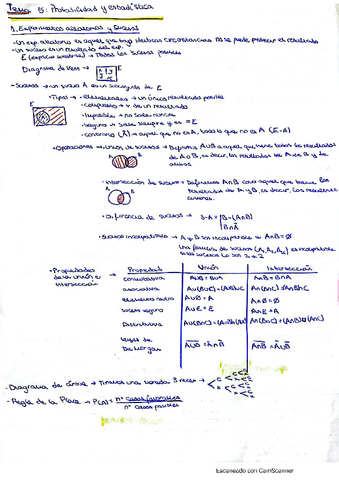 Tema 15: Probabilidad y estadística
1. Experimentos aleatorios y sucesos
- Un exp. aleatorio es aquel que bajo idénticas circunstancias no se puede predecir el resultado
- Un suceso es un resultado del exp.
E (espacio muestral) → Todos los sucesos posibles
Diagrama de Venn →
E
- Sucesos → un suceso A es un subconjunto de E
• Tipos → • elementales → un único resultado posible
• compuestos → + de un resultado
• imposible → no sale nunca
• seguro → sale siempre y es = E
• contrario (Ā) → aquel que no es A, todo lo que no es A (E-A)
• Operaciones → • Unión de sucesos → Definimos A∪B a aquel que tiene todos los resultados
de A o B, es decir, los resultados de A, de B y de
ambos
A B
• Intersección de sucesos → Definimos A∩B como aquel que tiene los
resultados de A y B, es decir, los resultados
comunes.
• Diferencia de sucesos → B-A = B-(A∩B)
B∩Ā
• Sucesos incompatibles → A y B son incompatibles → A∩B=Ø
Una familia de sucesos es incompatible
2 a 2
- Propiedades
de la unión e
intersección
Propiedad Unión Intersección
conmutativa A∪B = B∪A A∩B = B∩A
asociativa A∪(B∪C) = (A∪B)∪C A∩(B∩C) = (A∩B)∩C
elemento neutro
suceso seguro A∪E = E A∩E = A
Distributiva
Leyes de
De Morgan
- Diagrama de árbol → Tiramos una moneda 3 veces →
- Regla de la Place → P(A) = nº casos favorables
nº casos posibles
Escaneado con CamScanner